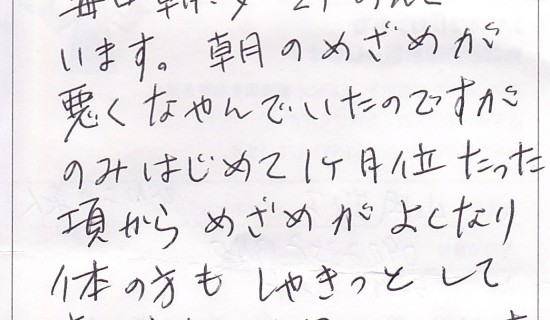 います。朝のめざめが
悪くなやんでいたのですが
のみはじめて1ヶ月位たった
項からめざめがよくなり
体の方もしゃきっとして